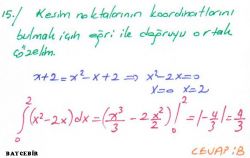 15./ Kesim noktalarının koordinatlarını
bulmak için eğri ile doğruyu ortak
çözelim.
x+2 = x²-x+2 ⇒ x²-2x=0
x=0 x=2
∫₀²(x²-2x)dx = (x³/3 - 2x²/2)|₀² = |-4/3| = 4/3
CEVAP:B
BATCEBİR